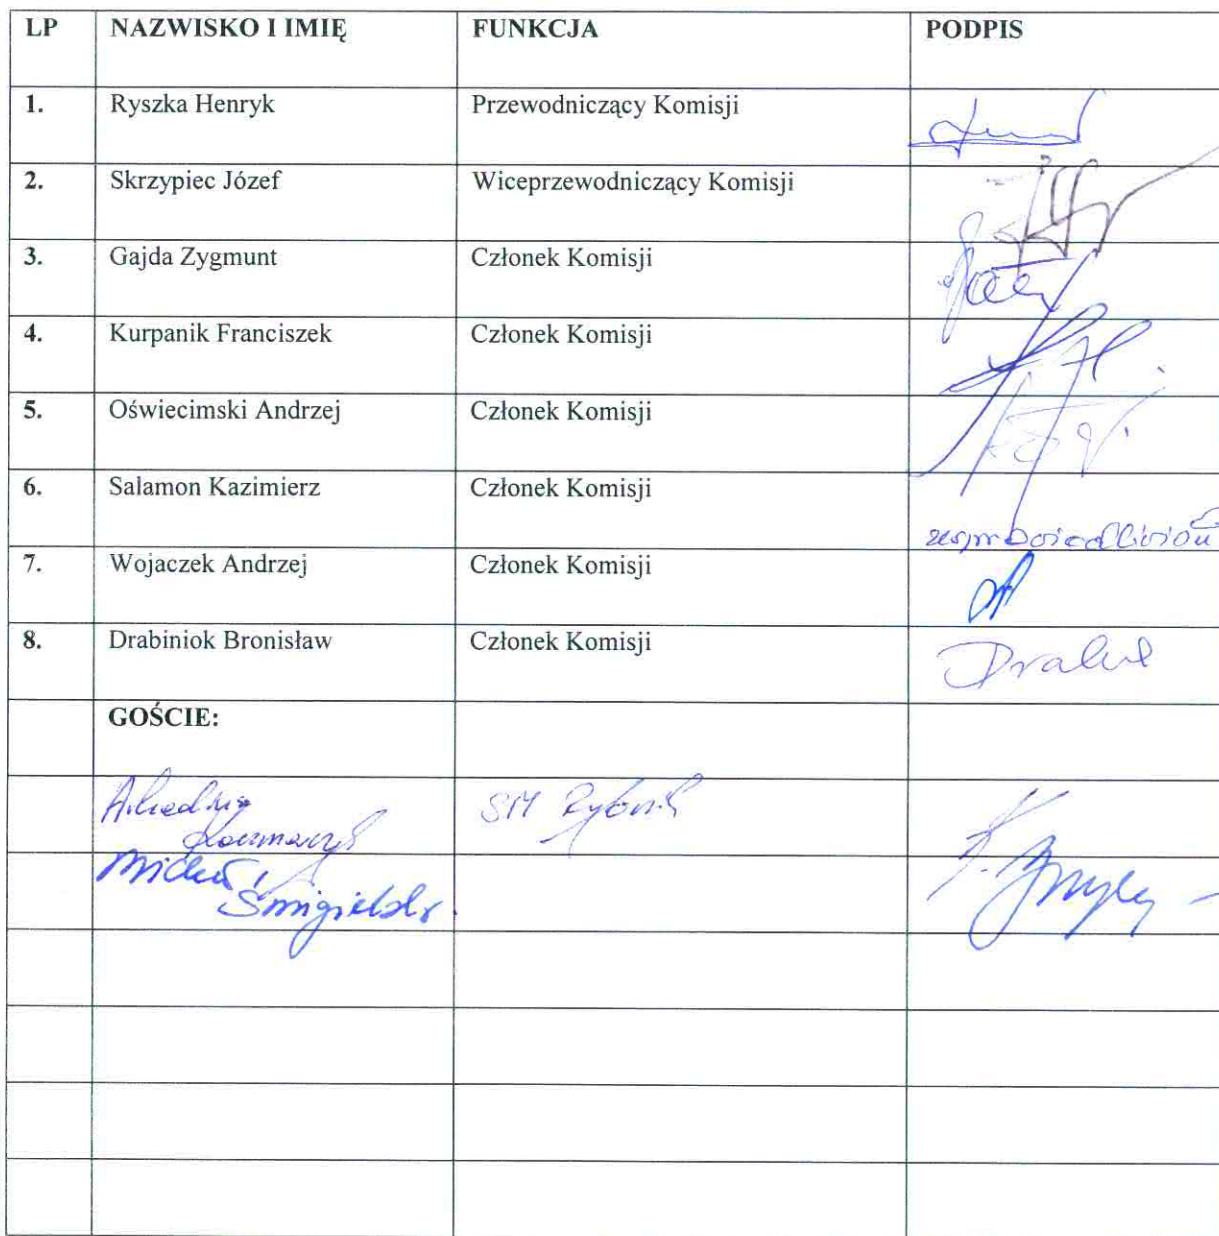 LP NAZWISKO I IMIĘ FUNKCJA PODPIS
1. Ryszka Henryk Przewodniczący Komisji
2. Skrzypiec Józef Wiceprzewodniczący Komisji
3. Gajda Zygmunt Członek Komisji
4. Kurpanik Franciszek Członek Komisji
5. Oświecimski Andrzej Członek Komisji
6. Salamon Kazimierz Członek Komisji
7. Wojaczek Andrzej Członek Komisji
8. Drabiniok Bronisław Członek Komisji
GOŚCIE:
SM Rybnik
Kaczmarczyk
Michał
Śmigielski